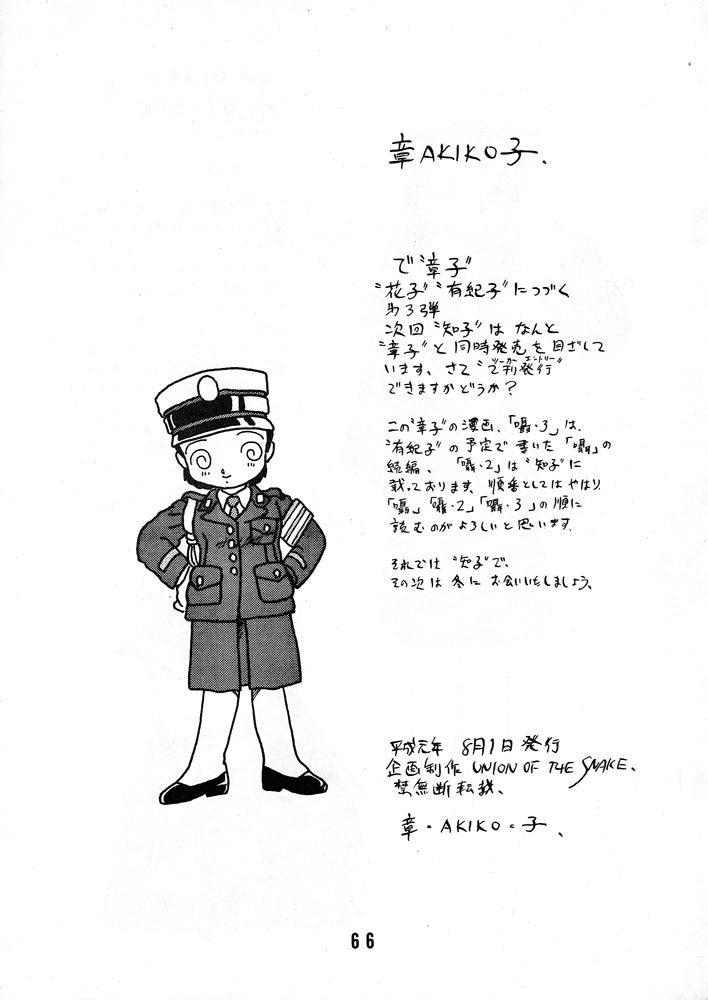 章AKIKO子、
で“章子”
“花子”“有紀子”につづく
第3弾
次回“知子”は なんと
“章子”と同時発売を目ざして
います、さて“2刊発行”
ツーカー エントリー
できますかどうか？
この“章子”の漫画、「囁・3」は、
“有紀子”の予定で書いた「囁」の
続編、「囁・2」は“知子”に
載っております、順番としてはやはり
「囁」「囁・2」「囁・3」の順に
読むのがよろしいと思います、
それでは“知子”で、
その次は冬に お会いいたしましょう、
平成元年 8月1日発行
企画制作 UNION OF THE SNAKE、
禁無断転載、
章＝AKIKO＝子、
66